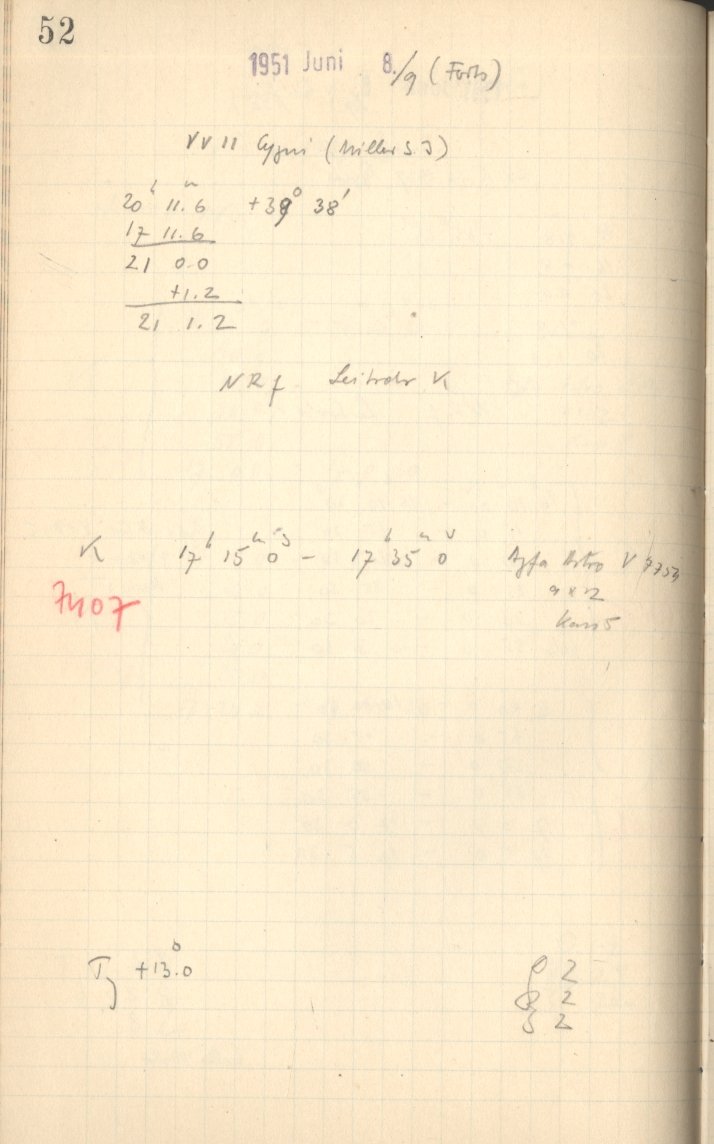 52
1951 Juni 8./9 (Forts)
VV 11 Cygni (Miller S.J)
20h 11.6m +39° 38'
17 11.6
21 0.0
+1.2
21 1.2
NRf Leitrohr K
K 17h 15m 0s – 17h 35m 0s Agfa Astro V
9 x 12
Kass 5
7407
T +13.0°
2
2
2